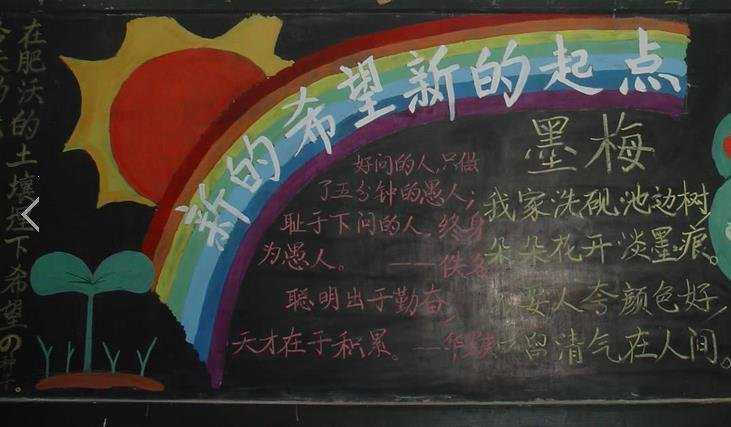 新的希望新的起点
在肥沃的土壤埋下希望の
好问的人,只做
了五分钟的愚人;
耻于下问的人,终身
为愚人。
——佚名
聪明出于勤奋,
天才在于积累。——华
墨梅
我家洗砚池边树,
朵朵花开淡墨痕。
要人夸颜色好,
留清气在人间。